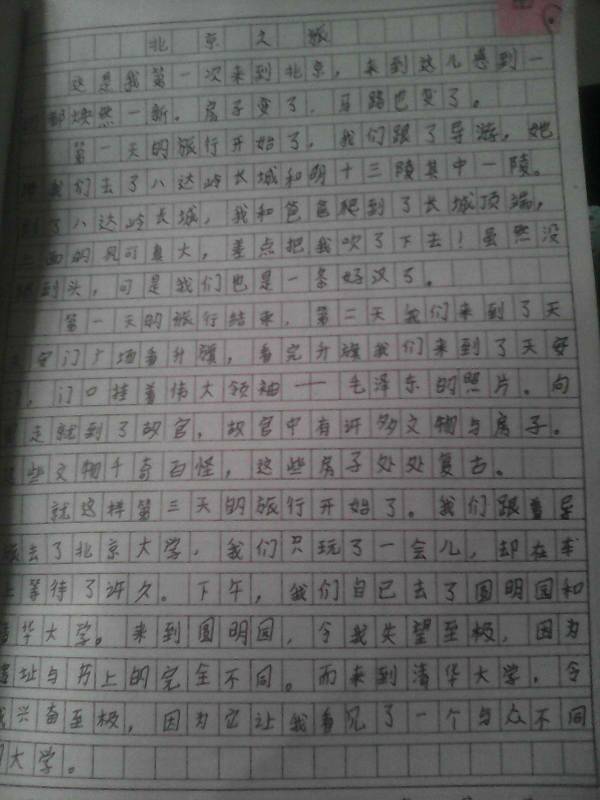 北京之旅
这是我第一次来到北京，来到这儿感到一
都焕然一新。房子变了，马路也变了。
第一天的旅行开始了，我们跟了导游，她
我们去了八达岭长城和明十三陵其中一陵。
到了八达岭长城，我和爸爸爬到了长城顶端，
上面的风可真大，差点把我吹了下去！虽然没
到头，可是我们也是一条好汉了。
第一天的旅行结束，第二天我们来到了天
安门广场看升旗，看完升旗我们来到了天安
，门口挂着伟大领袖——毛泽东的照片。向
走就到了故宫，故宫中有许多文物与房子。
这些文物千奇百怪，这些房子处处复古。
就这样第三天的旅行开始了。我们跟着导
游去了北京大学，我们只玩了一会儿，却在车
上等待了许久。下午，我们自己去了圆明园和
清华大学。来到圆明园，令我失望至极，因为
遗址与书上的完全不同。而来到清华大学，令
我兴奋至极，因为它让我看见了一个与众不同
的大学。